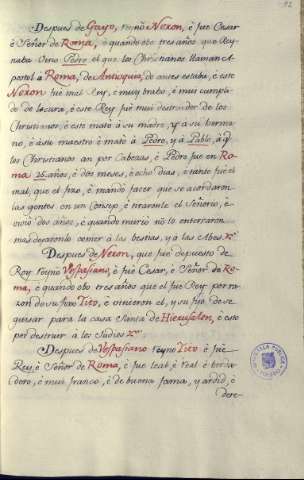 Despues de Gayo, reynò Nexon, è fue Cesar
è Señor de Roma, è quando obo tres años que Rey-
naba vino Pedro el que los Christianos llaman A-
postol a Roma, de Antiuquia, do antes estaba, è este
Nexon fue mal Rey, è muy brabo, è mui cumpli-
do de locura, è este Rey fue mui destruidor de los
Christianos, è este matò à su madre, y à su herma-
no, è à su maestro è matò à Pedro, y à Pablo, à q.
los Christianos an por Cabezas, è Pedro fue en Ro-
ma 25 años, è dos meses, è ocho dias, è tanto fue el
mal, que el fizo, è mandò facer que se acordaron
las gentes en un Consejo, è tiraronle el Señorio, è
vivió dos años, è quando muriò no lo enterraron
mas dejaronlo comer à las bestias, y à las Abes &c.
Despues de Nexon, que fue depuesto de
Rey reynò Vespasiano, è fue Cesar, è Señor de Ro-
ma, è quando obo tres años que el fue Rey por ra-
zon de su fijo Tito, è vinieron el, y su fijo de se-
guisar para la casa Santa de Hierusalen, è esto
por destruir à los Judios &c.
Despues de Vespasiano reynò Tito è fue
Rey, è Señor de Roma, è fue leal, è real è verda-
dero, è mui franco, è de buena fama, y ardid, è
dere-